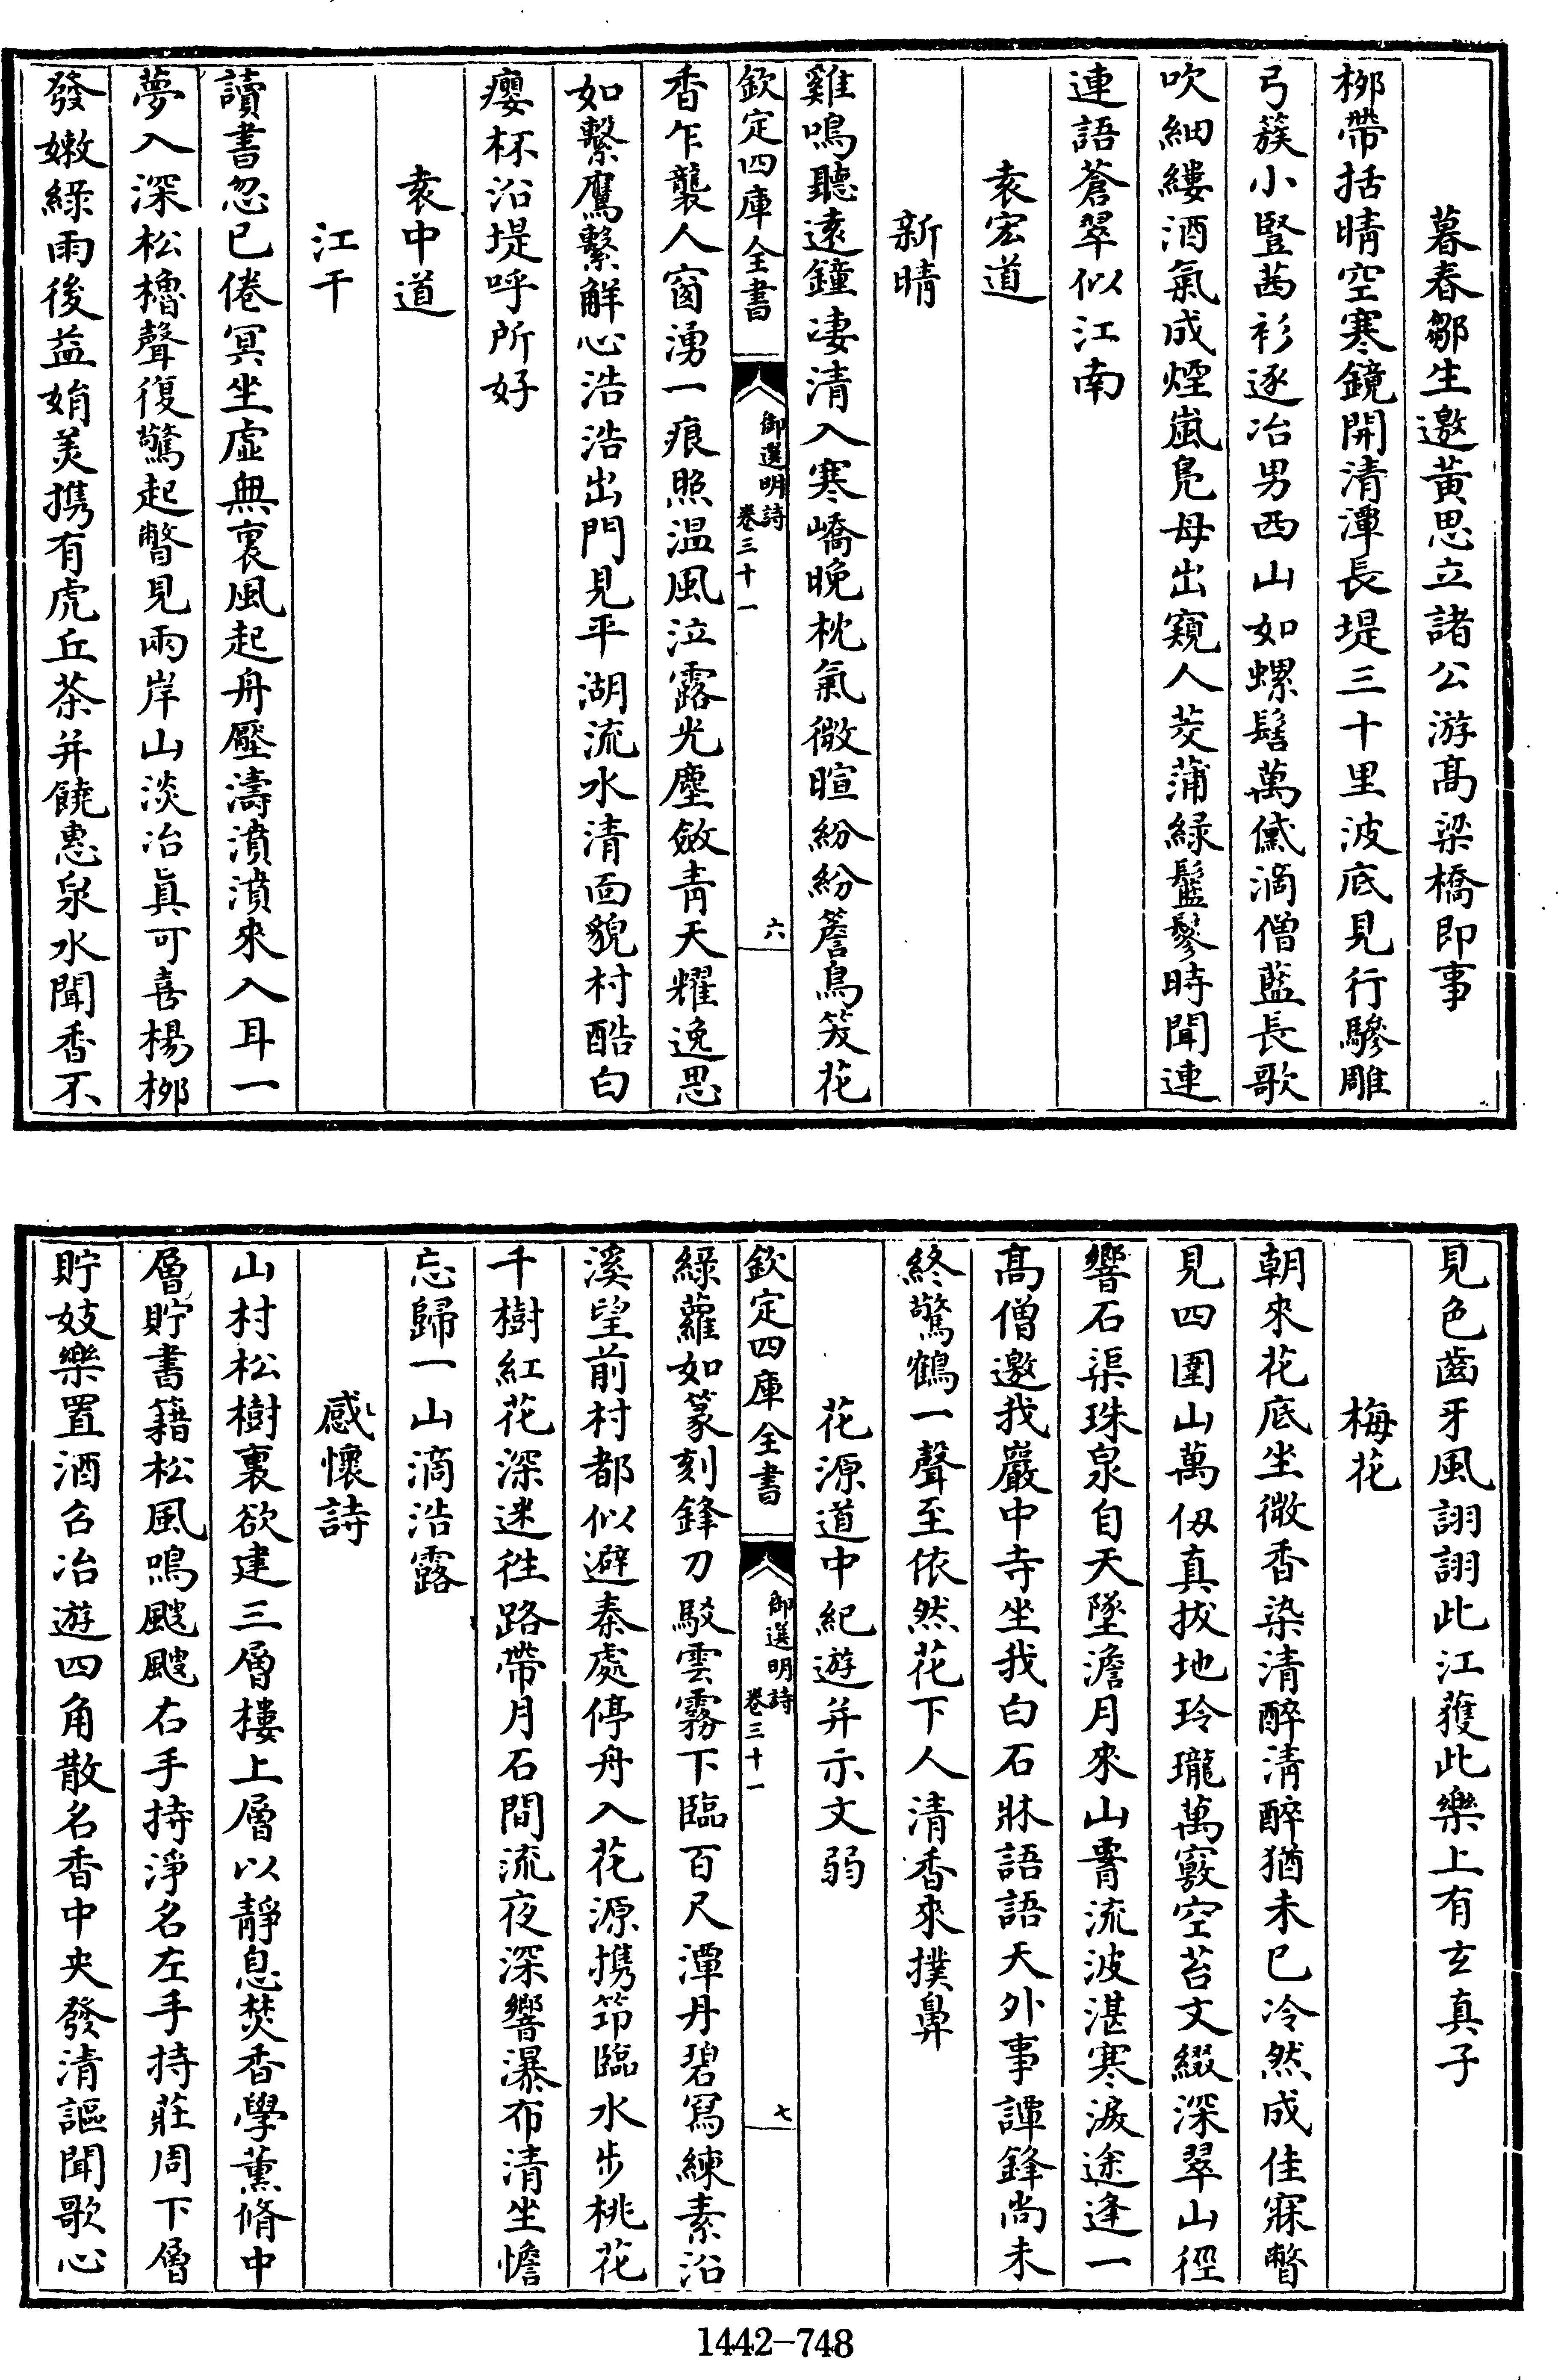 暮春鄒生邀黃思立諸公游高梁橋即事
栁帶括晴空寒鏡開清潭長堤三十里波底見行驂雕
弓簇小豎茜衫逐冶男西山如螺髻萬黛滴僧藍長歌
吹細縷酒氣成煙嵐鳧母出窺人茭蒲緑鬖鬖時聞連
連語蒼翠似江南
袁宏道
新晴
雞鳴聽遠鐘凄清入寒嶠晚枕氣微暄紛紛簷鳥笑花
欽定四庫全書
御選明詩
卷三十一
六
香乍襲人窗湧一痕照温風泣露光塵斂青天耀逸思
如繫鷹繫解心浩浩出門見平湖流水清面貌村酷白
癭杯沿堤呼所好
袁中道
江干
讀書忽已倦冥坐虛無裏風起舟壓濤濆濆來入耳一
夢入深松櫓聲復驚起瞥見兩岸山淡冶眞可喜楊栁
發嫩緑雨後益娟美携有虎丘茶并饒惠泉水聞香不
見色齒牙風詡詡此江獲此樂上有玄真子
梅花
朝來花底坐微香染清醉清醉猶未已冷然成佳寐瞥
見四圍山萬仭真拔地玲瓏萬竅空苔文綴深翠山徑
響石渠珠泉自天墜澹月來山罥流波湛寒淚途逢一
高僧邀我巖中寺坐我白石牀語語天外事譚鋒尚未
終驚鶴一聲至依然花下人清香來撲鼻
花源道中紀遊并示文弱
欽定四庫全書
御選明詩
卷三十一
七
緑蘿如篆刻鋒刀駁雲霧下臨百尺潭丹碧寫練素沿
溪望前村都似避秦處停舟入花源携笻臨水步桃花
千樹紅花深迷徃路帶月石間流夜深響瀑布清坐憺
忘歸一山滴浩露
感懷詩
山村松樹裏欲建三層樓上層以靜息焚香學薰脩中
層貯書籍松風鳴颼颼右手持淨名左手持莊周下層
貯妓樂置酒召冶遊四角散名香中央發清謳聞歌心
1442-748